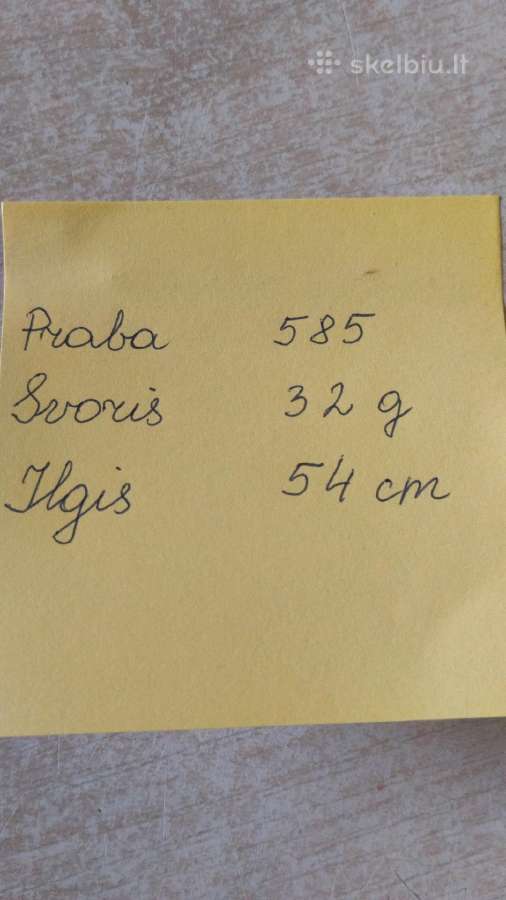 skelbiu.lt
Praba 585
Svoris 32 g
Ilgis 54 cm